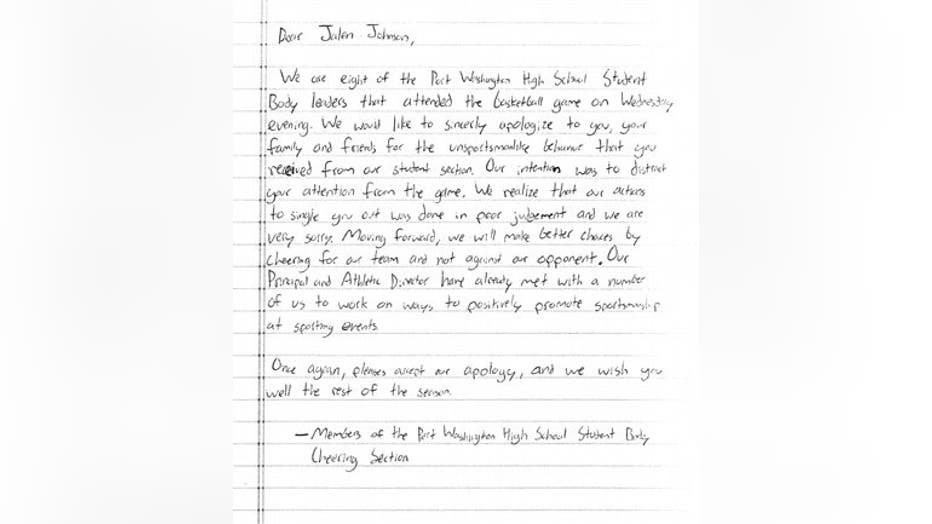 Dear Jalen Johnson,
We are eight of the Port Washington High School Student
Body leaders that attended the basketball game on Wednesday
evening. We would like to sincerly apologize to you, your
family and friends for the unsportsmanlike behavior that you
received from our student section. Our intention was to distract
your attention from the game. We realize that our actions
to single you out was done in poor judgement and we are
very sorry. Moving forward, we will make better choices by
cheering for our team and not against our opponent. Our
Principal and Athletic Director have already met with a number
of us to work on ways to positively promote sportsmanship
at sporting events.
Once again, pleases accept our apology, and we wish you
well the rest of the season.
— Members of the Port Washington High School Student Body
Cheering Section